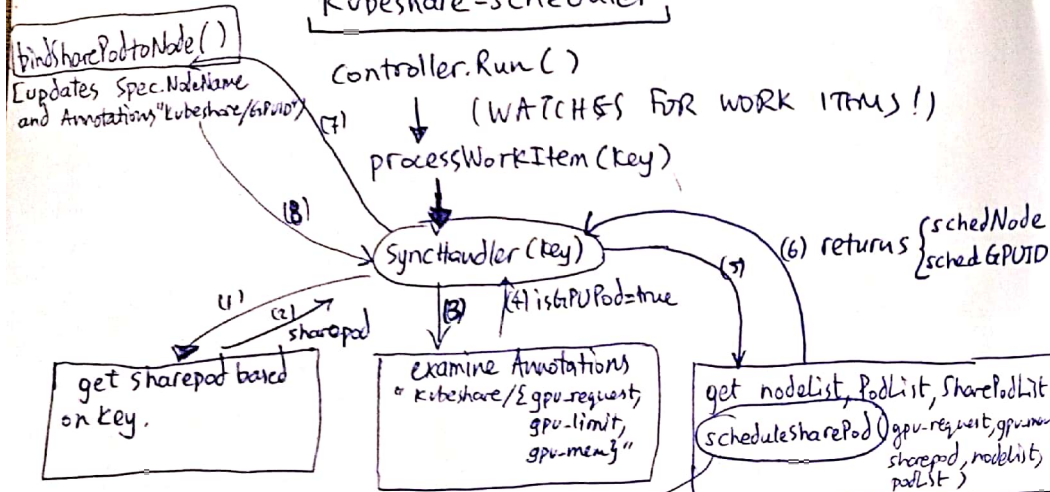 Kubeshare-scheduler
bindSharePodtoNode()
[updates Spec.NodeName
and Annotations "kubeshare/GPUID")
Controller.Run()
(WATCHES FOR WORK ITEMS!)
processWorkItem(key)
(7)
(8)
SyncHandler(key)
(6) returns { schedNode
schedGPUID
(5)
(1)
(2)
sharepod
(3)
(4) isGPUPod=true
get sharepod based
on key.
examine Annotations
"kubeshare/{gpu_request,
gpu-limit,
gpu-mem}"
get nodeList, PodList, SharePodList
scheduleSharePod(gpu-request, gpu-mem
sharepod, nodelist,
podList)